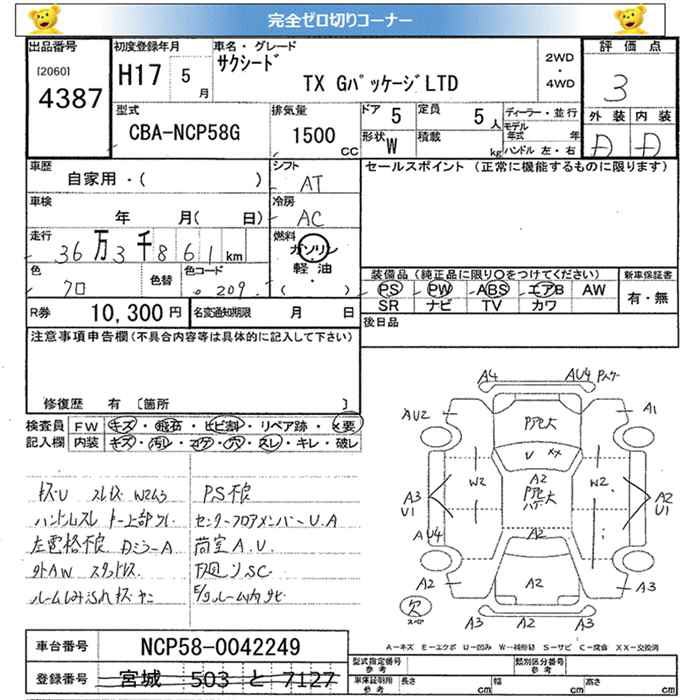 完全ゼロ切りコーナー
出品番号 初度登録年月 車名・グレード 評価点
[2060] 4387 H17 5月 サクシード TX GパッケージLTD 2WD・4WD 3
型式 排気量 ドア 定員 ディーラー・並行 外装 内装
CBA-NCP58G 1500CC 5 5人 モデル年式 年 D D
形状 W 積載 kg ハンドル 左・右
車歴 シフト セールスポイント (正常に機能するものに限ります)
自家用・( ) AT
車検 冷房
年 月( 日) AC
走行 燃料
36万3千861km ガソリン 軽油 ( )
色 色替 色コード 装備品(純正品に限り○をつけてください) 新車保証書
クロ 209 PS PW ABS エアB AW 有・無
SR ナビ TV カワ
R券 10,300円 名変通知期限 月 日 後日品
注意事項申告欄(不具合内容等は具体的に記入して下さい)
修復歴 有 [箇所 ]
検査員 FW キズ・飛石・ヒビ割・リペア跡・×要
記入欄 内装 キズ・汚レ・コゲ・穴・スレ・キレ・破レ
PS不良
ハンドルスレ
センターフロアメンバーU.A
左電格不良 DミラーA
荷室A.U
外AW スタッドレス
下廻りSC
E/gルーム内サビ
A4 AU4
AU2 A1
Pアセ大
V XX
W2 A2 W2
A3 A2
U1 U1
AU4 A2
A2 A2 A3
欠 A3 A3
A-キズ E-エクボ U-凹み W-補修跡 S-サビ C-腐食 XX-交換済
車台番号 NCP58-0042249
型式指定番号 参考 類別区分番号 参考
登録番号 宮城 503 と 7127
車庫証明 参考 長さ cm 幅 cm 高さ cm